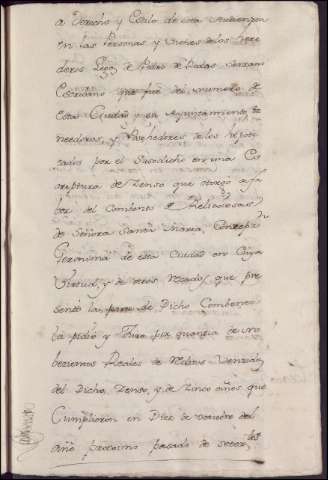 a Derecho y Estilo de esta Audiencia
en las Personas y Vienes de los here
deros de Pedro de Rodas Serrano
Escrivano que fue del numero de
esta Ciudad y su Ayuntamiento, te
nedores, y Poshedores de los ypote
cados por el Susodicho en una Es
criptura de Zenso que otorgo a fa
bor del Combento de Relixiosas
de Señora Santa Maria,
Geronima de esta Ciudad en Cuya
Virtud, y de otros recados que pre
sento la parte de Dicho Comben
to pidio y Juro por quantia de no
bezientos Reales de Vellon Venzidos
del Dicho Zenso, y de Zinco años que
Cumplieron en Diez de octubre del
año proximo pasado de setez.